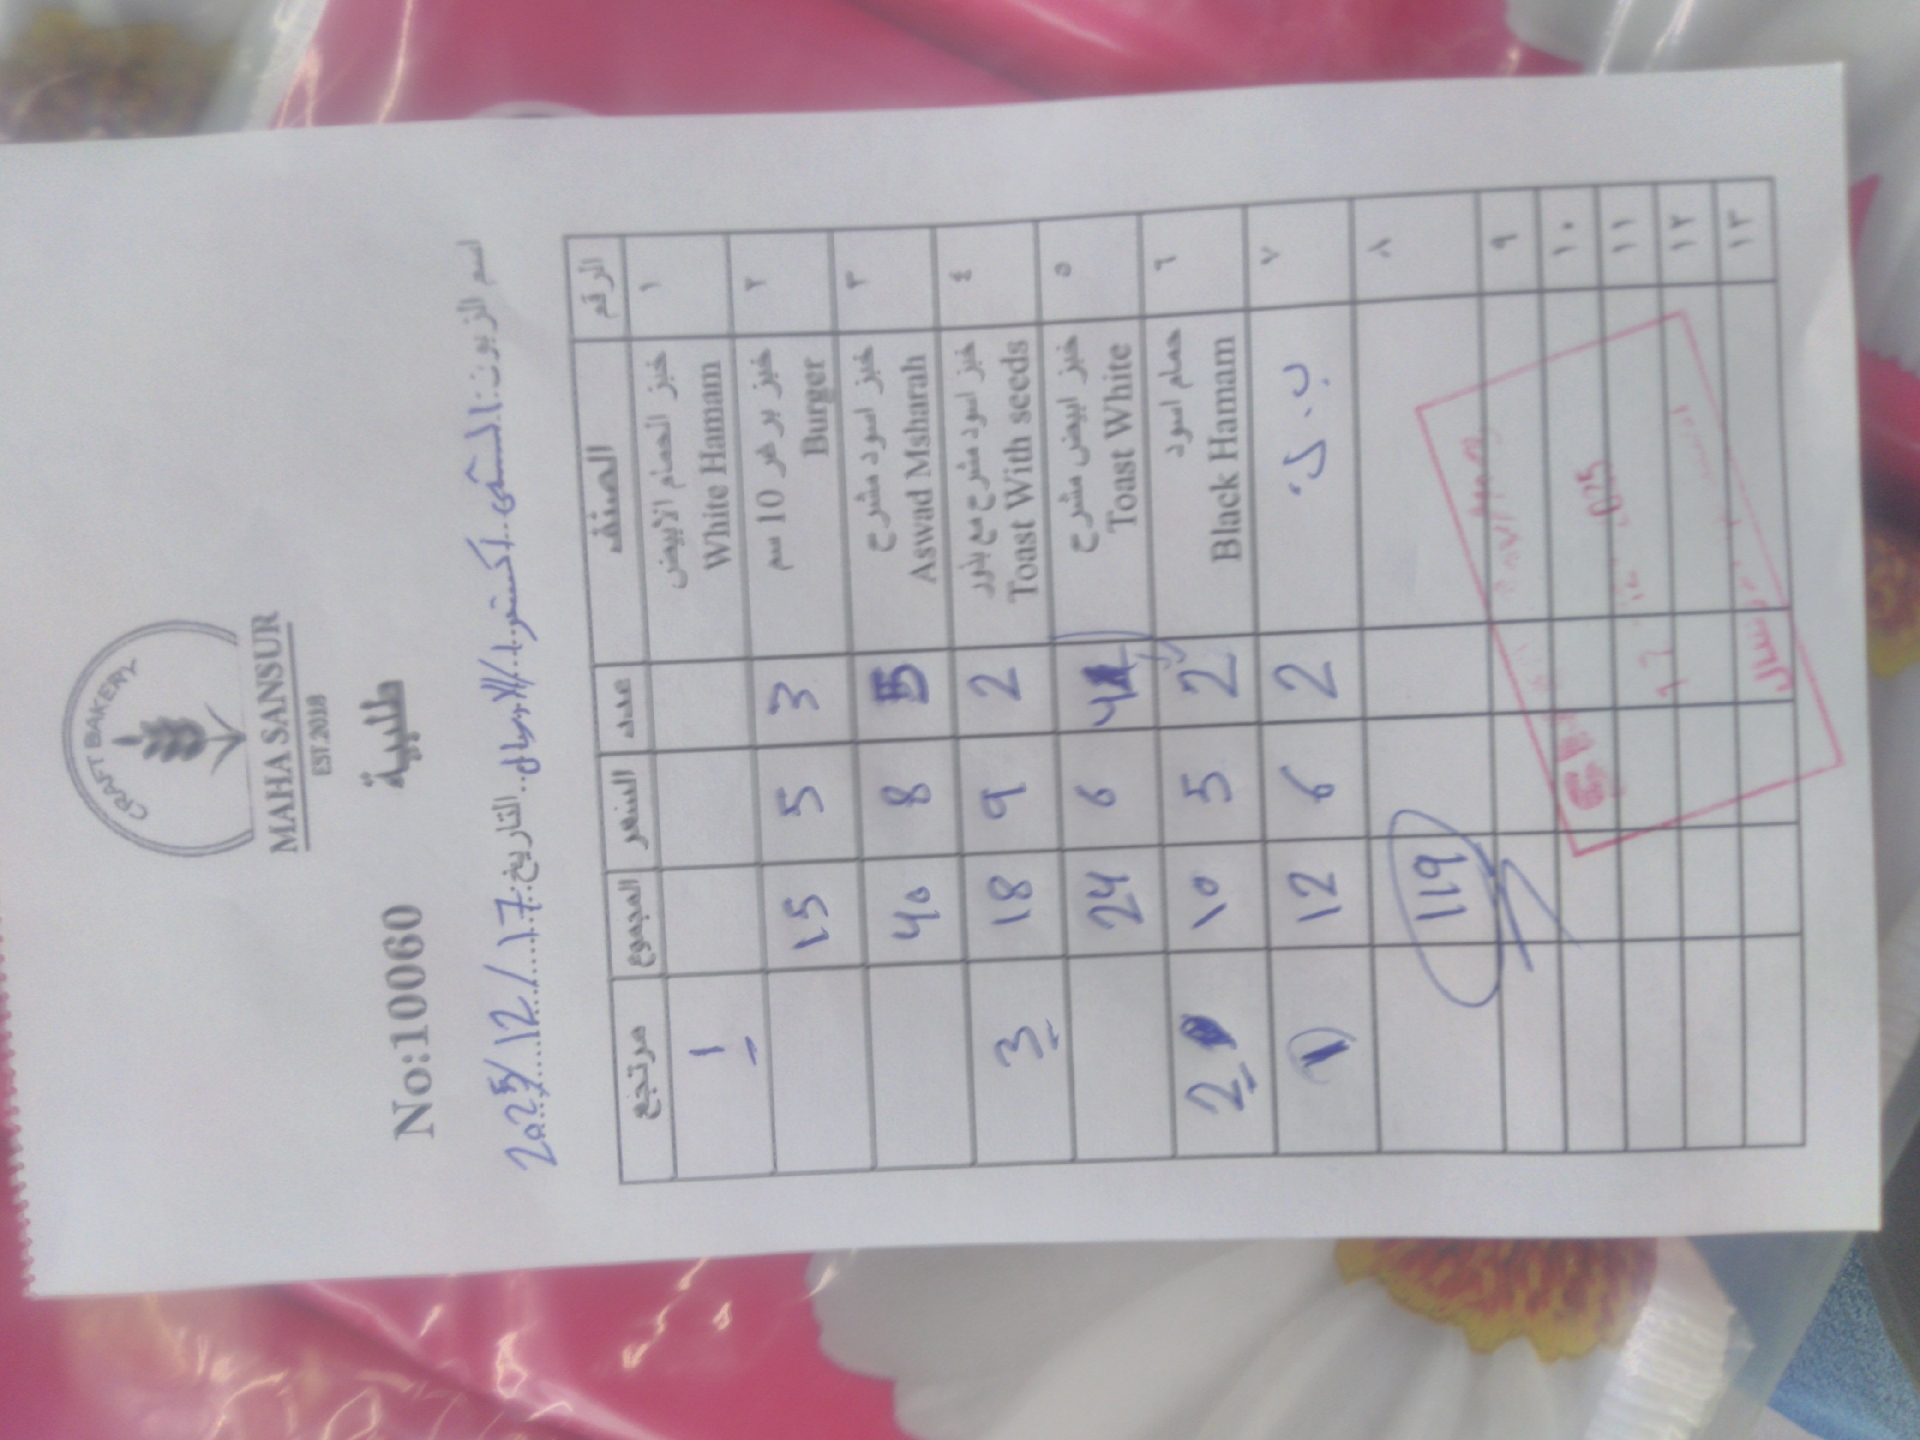 CRAFT BAKERY
MAHA SANSUR
EST.2018
طلبية
No:10060
اسم الزبون: الشني اكسترا / الارسال التاريخ: 2025/12/17
الرقم الصنف عدد السعر المجموع مرتجع
١ خبز الحمام الابيض 1
White Hamam
٢ خبز برغر 10 سم 3 5 15
Burger
٣ خبز اسود مشرح 5 8 40
Aswad Msharah
٤ خبز اسود مشرح مع بذور 2 9 18 3
Toast With seeds
٥ خبز ابيض مشرح 4 6 24
Toast White
٦ حمام اسود 2 5 10 2
Black Hamam
٧ ب.ك. 2 6 12 1
٨ 119
٩
١٠
١١
١٢
١٣